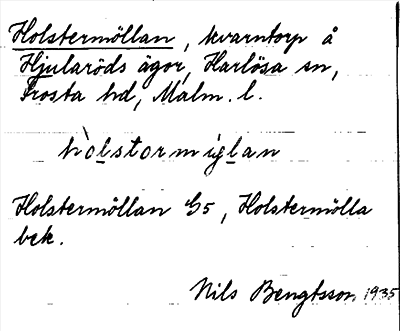 Holstermöllan, kvarntorp å
Hjularöds ägor, Harlösa sn,
Frosta hd, Malm. l.
hòlstormiglan
Holstermöllan G5, Holstermölla
bek.
Nils Bengtsson 1935